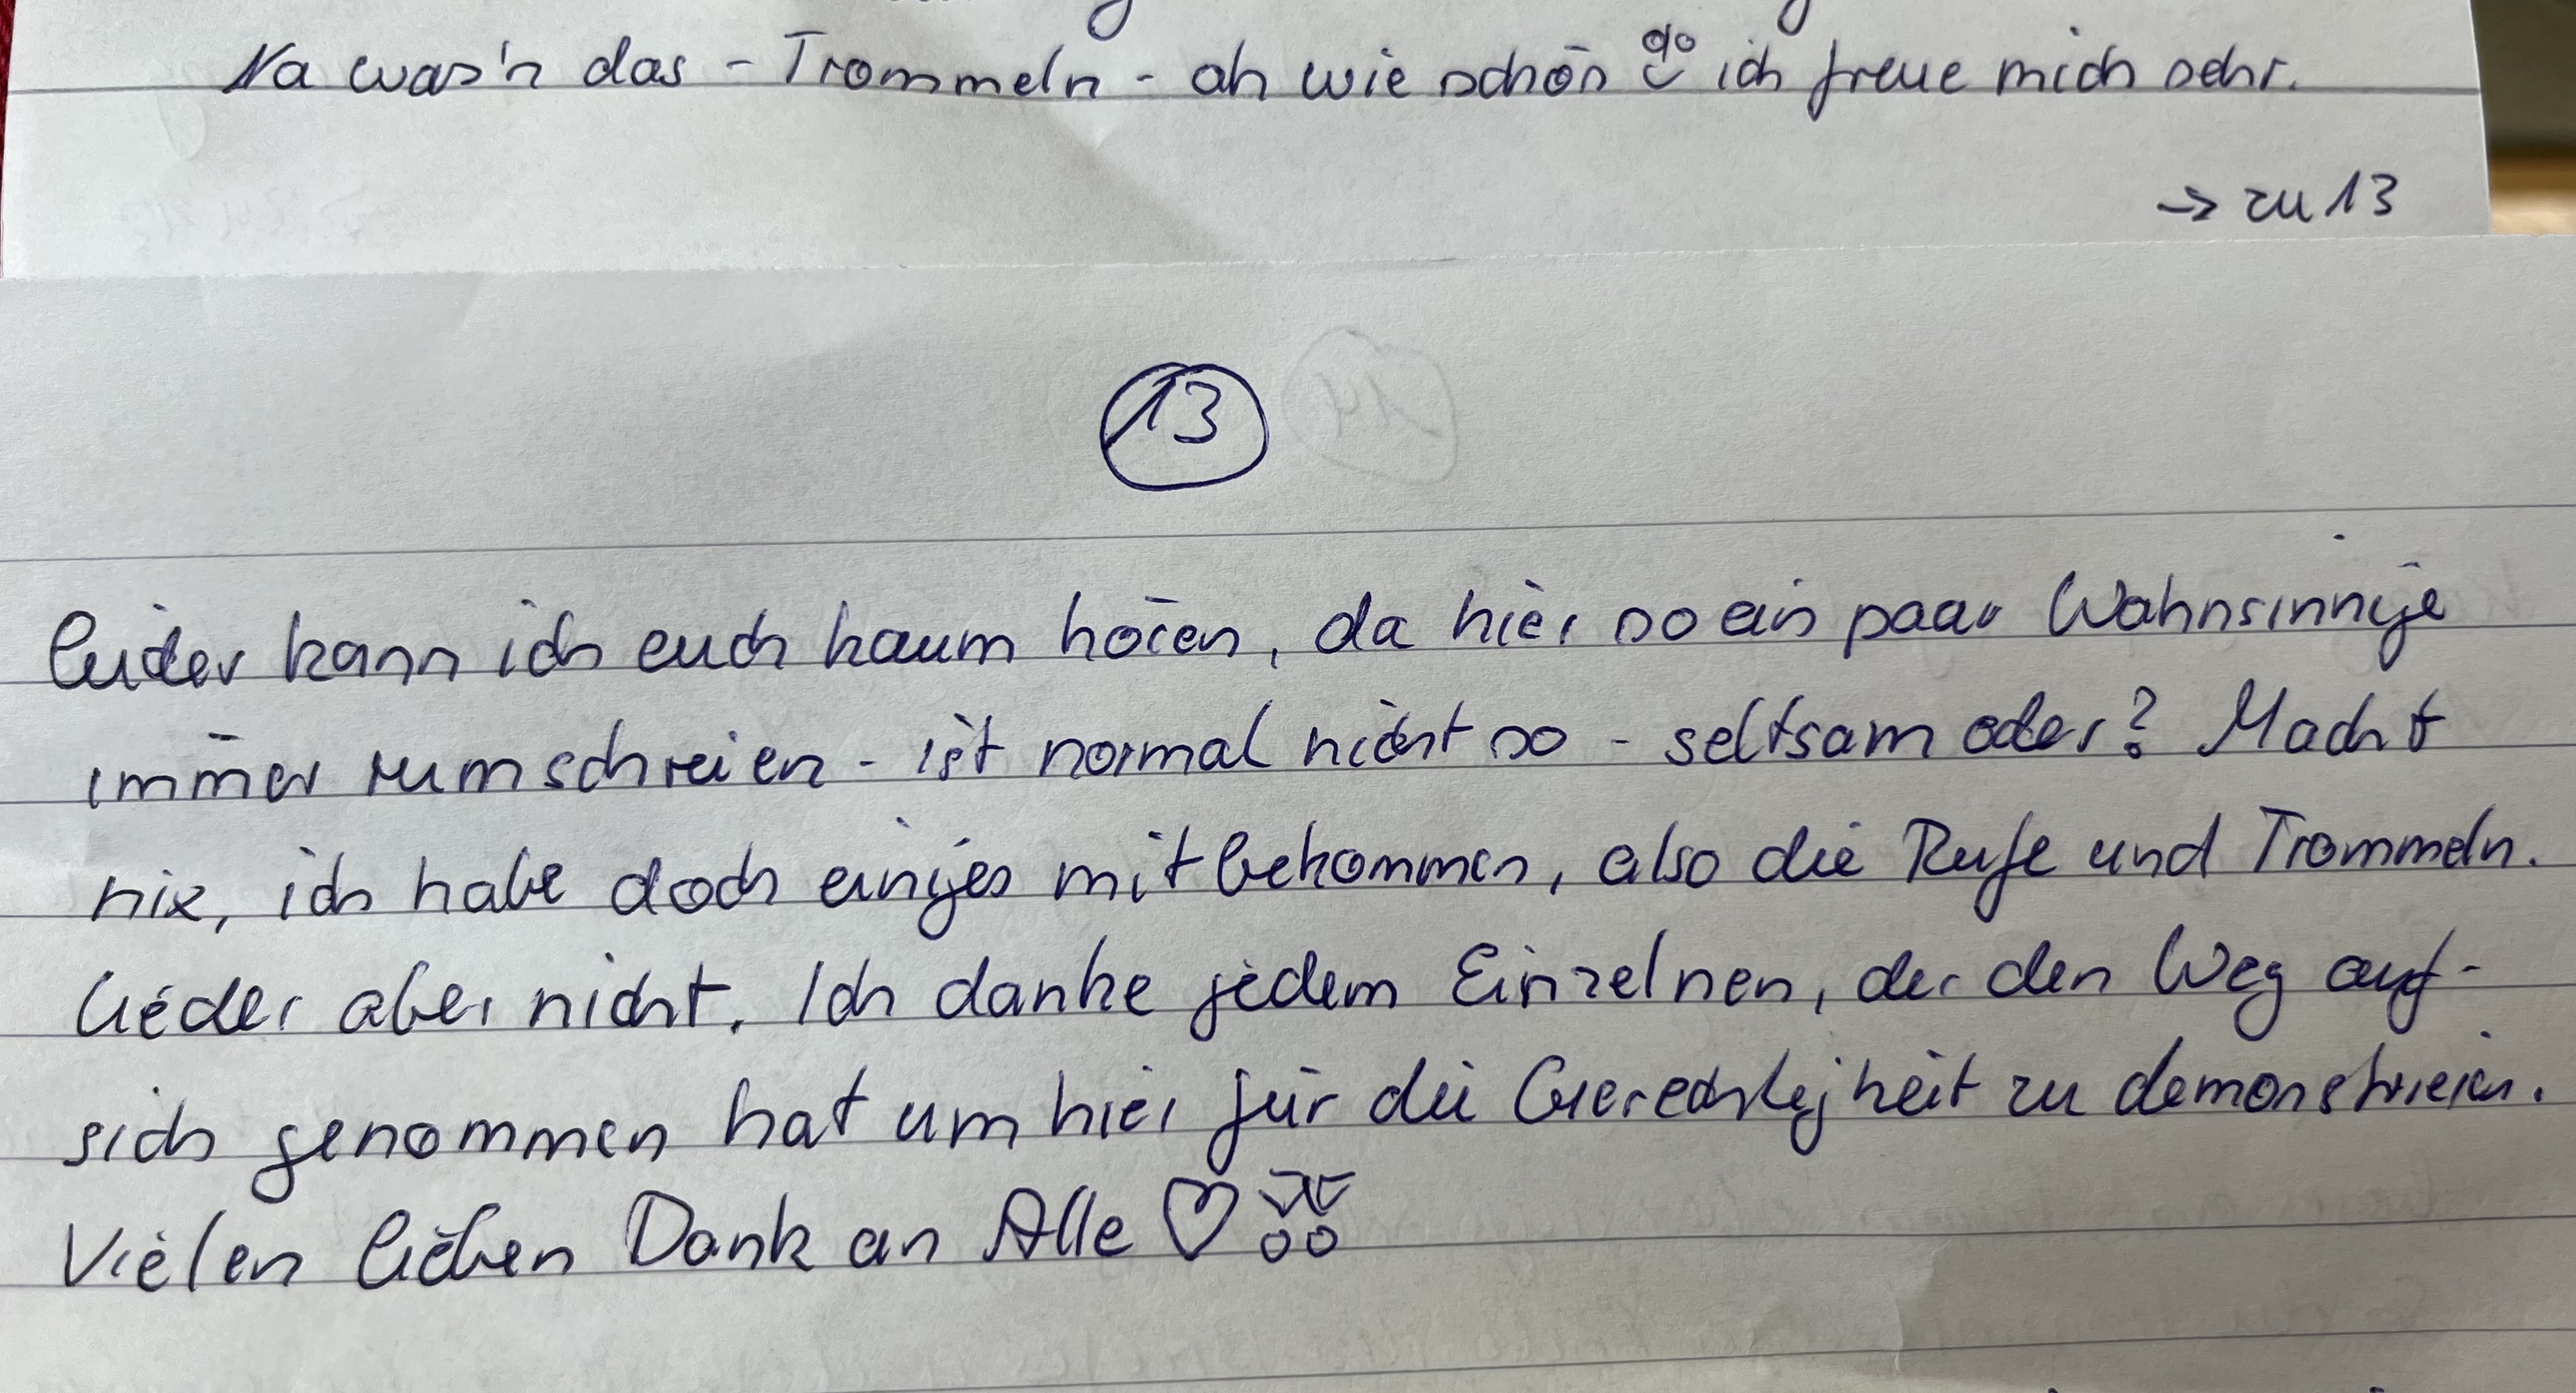 Na was'n das - Trommeln - ah wie schön ich freue mich sehr.
→ zu 13
13
Leider kann ich euch kaum hören, da hier so ein paar Wahnsinnige
immer rumschreien - ist normal nicht so - seltsam oder? Macht
nix, ich habe doch einiges mitbekommen, also die Rufe und Trommeln.
Lieder aber nicht. Ich danke jedem Einzelnen, der den Weg auf-
sich genommen hat um hier für die Gerechtigkeit zu demonstrieren.
Vielen lieben Dank an Alle ♡